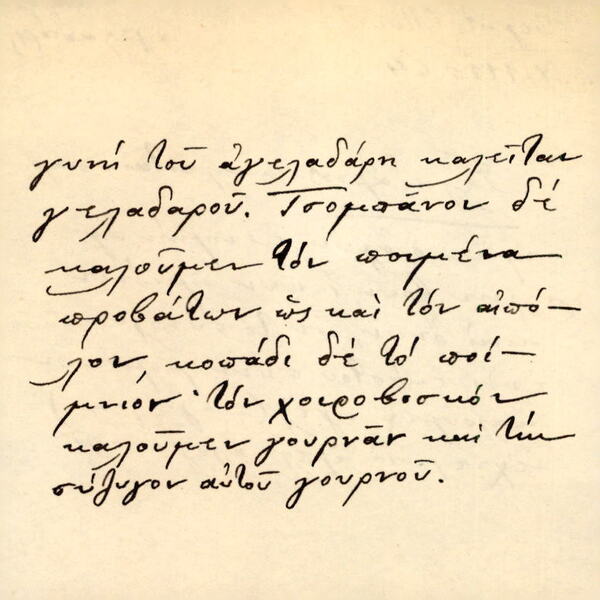 γυνή τοῦ ἀγελαδάρη καλεῖται
γελαδαροῦ. Τσομπᾶνον δέ
καλοῦμεν τόν ποιμένα
προβάτων ὡς καὶ τόν αἰπό-
λον, κοπάδι δέ τό ποί-
μνιόν· τόν χοιροβοσκόν
καλοῦμεν γουρνᾶν καί τήν
σύζυγον αὐτοῦ γουρνοῦ.